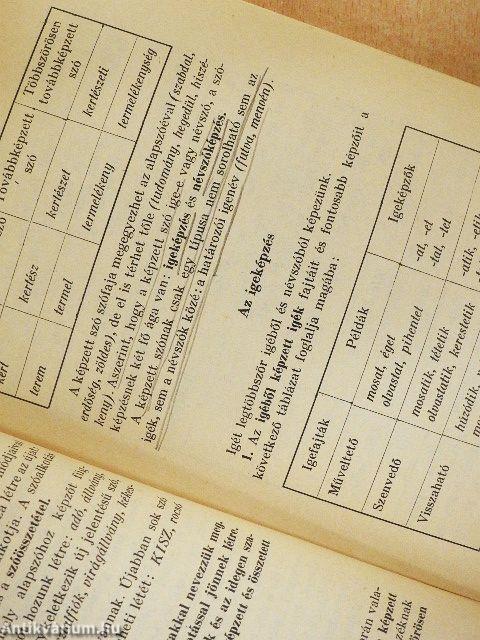 szó
Továbbképzett
szó
Többszörösen
továbbképzett
szó
kert
kertész
kertészet
kertészeti
terem
termel
termelékeny
termelékenység
A képzett szó szófaja megegyezhet az alapszóéval (szabdal,
erdőség, zöldes), de el is térhet tőle (tudomány, hegedül, hiszé-
keny). Aszerint, hogy a képzett szó ige-e vagy névszó, a szó-
képzésnek két fő ága van: igeképzés és névszóképzés.
A képzett szónak csak egy típusa nem sorolható sem az
igék, sem a névszók közé: a határozói igenév (futva, menvén).
Az igeképzés
Igét legtöbbször igéből és névszóból képezünk.
1. Az igéből képzett igék fajtáit és fontosabb képzőit a
következő táblázat foglalja magába:
Igefajták
Példák
Igeképzők
Műveltető
mosat, éget
olvastat, pihentet
-at, -et
-tat, -tet
Szenvedő
mosatik, tétetik
olvastatik, kerestetik
-atik, -etik
Visszaható
húzódik,
létre az újabb
alkotja. A szóalkotás
a szóösszetétel.
alapszóhoz képzőt füg-
hozunk létre: adó, állvány,
keletkezik új jelentésű szó,
virágállvány,
nak. Újabban sok szó
létét: KISZ,
akkal nevezzük meg.
tással jönnek létre.
k és az idegen sza-
képzett és összetett
orán vala-
képzett
éknak
örösen
Antikvarium.hu